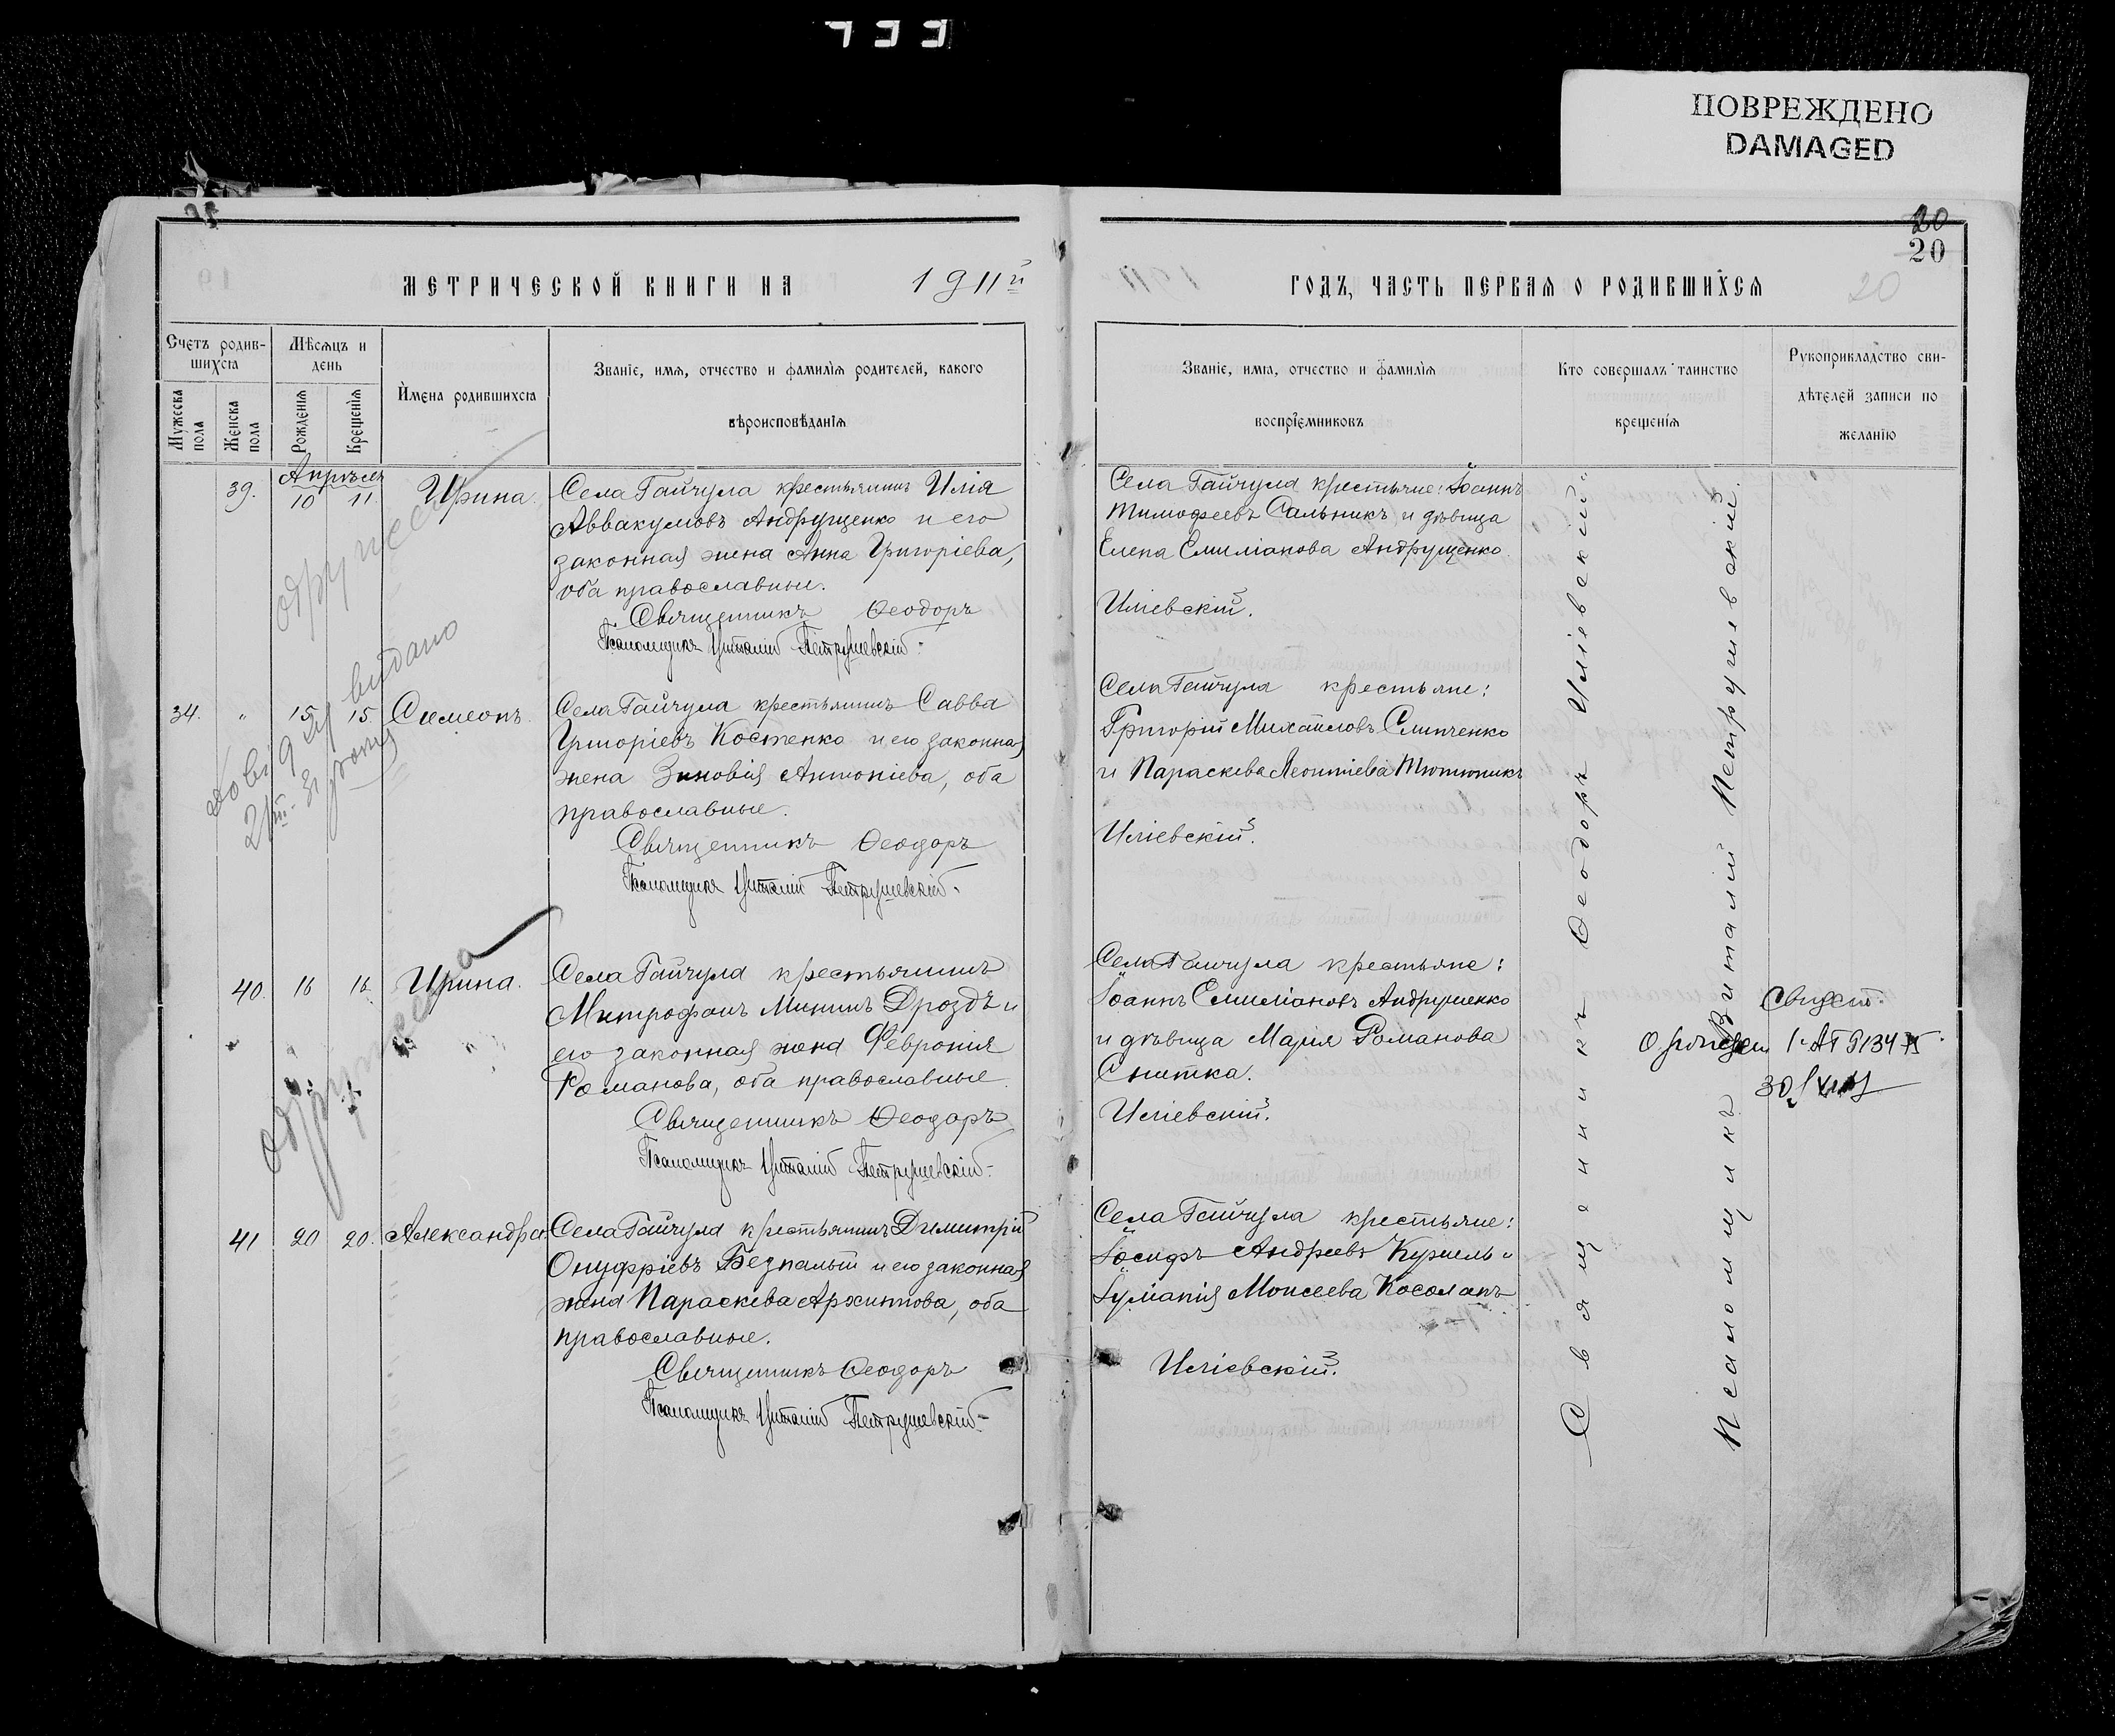 733
ПОВРЕЖДЕНО
DAMAGED
20
20
20
МЕТРИЧЕСКОЙ КНИГИ НА 1911й
ГОДЪ, ЧАСТЬ ПЕРВАЯ О РОДИВШИХСЯ
Счетъ родив-
шихся
Мѣсяцъ и
день
Мужеска
пола
Женска
пола
Рожденія
Крещенія
Имена родившихся
Званіе, имя, отчество и фамилія родителей, какого
вѣроисповѣданія
Званіе, имя, отчество и фамилія
воспріемниковъ
Кто совершалъ таинство
крещенія
Рукоприкладство сви-
дѣтелей записи по
желанію
Апрѣля
39. 10 11. Ирина.
Села Гайчула крестьянинъ Илія
Аввакумовъ Андрущенко и его
законная жена Анна Григоріева,
оба православные.
Священникъ Ѳеодоръ
Псаломщикъ Виталій Петрушевскій.
Села Гайчула крестьяне: Іоаннъ
Тимофеевъ Сальникъ и дѣвица
Елена Емиліанова Андрущенко
Иліевскій.
34. " 15 15. Симеонъ.
Села Гайчула крестьянинъ Савва
Григоріевъ Костенко и его законная
жена Зиновія Антоніева, оба
православные.
Священникъ Ѳеодоръ
Псаломщикъ Виталій Петрушевскій.
Села Гайчула крестьяне:
Григорій Михаиловъ Слипченко
и Параскева Леонтіева Тютюникъ
Иліевскій.
видано
40. 16 16. Ирина.
Села Гайчула крестьянинъ
Митрофанъ Мининъ Дроздъ и
его законная жена Февронія
Романова, оба православные.
Священникъ Ѳеодоръ
Псаломщикъ Виталій Петрушевскій.
Села Гайчула крестьяне:
Іоаннъ Емиліановъ Андрущенко
и дѣвица Марія Романова
Снитка.
Иліевскій.
Свидет.
41 20 20. Александра.
Села Гайчула крестьянинъ Димитрій
Онуфріевъ Безпалый и его законная
жена Параскева Архиппова, оба
православные.
Священникъ Ѳеодоръ
Псаломщикъ Виталій Петрушевскій.
Села Гайчула крестьяне:
Іосифъ Андреевъ Кушель и
Іуліанія Моисеева Косолапъ
Иліевскій.
Священникъ Ѳеодоръ Иліевскій.
Псаломщикъ Виталій Петрушевскій.